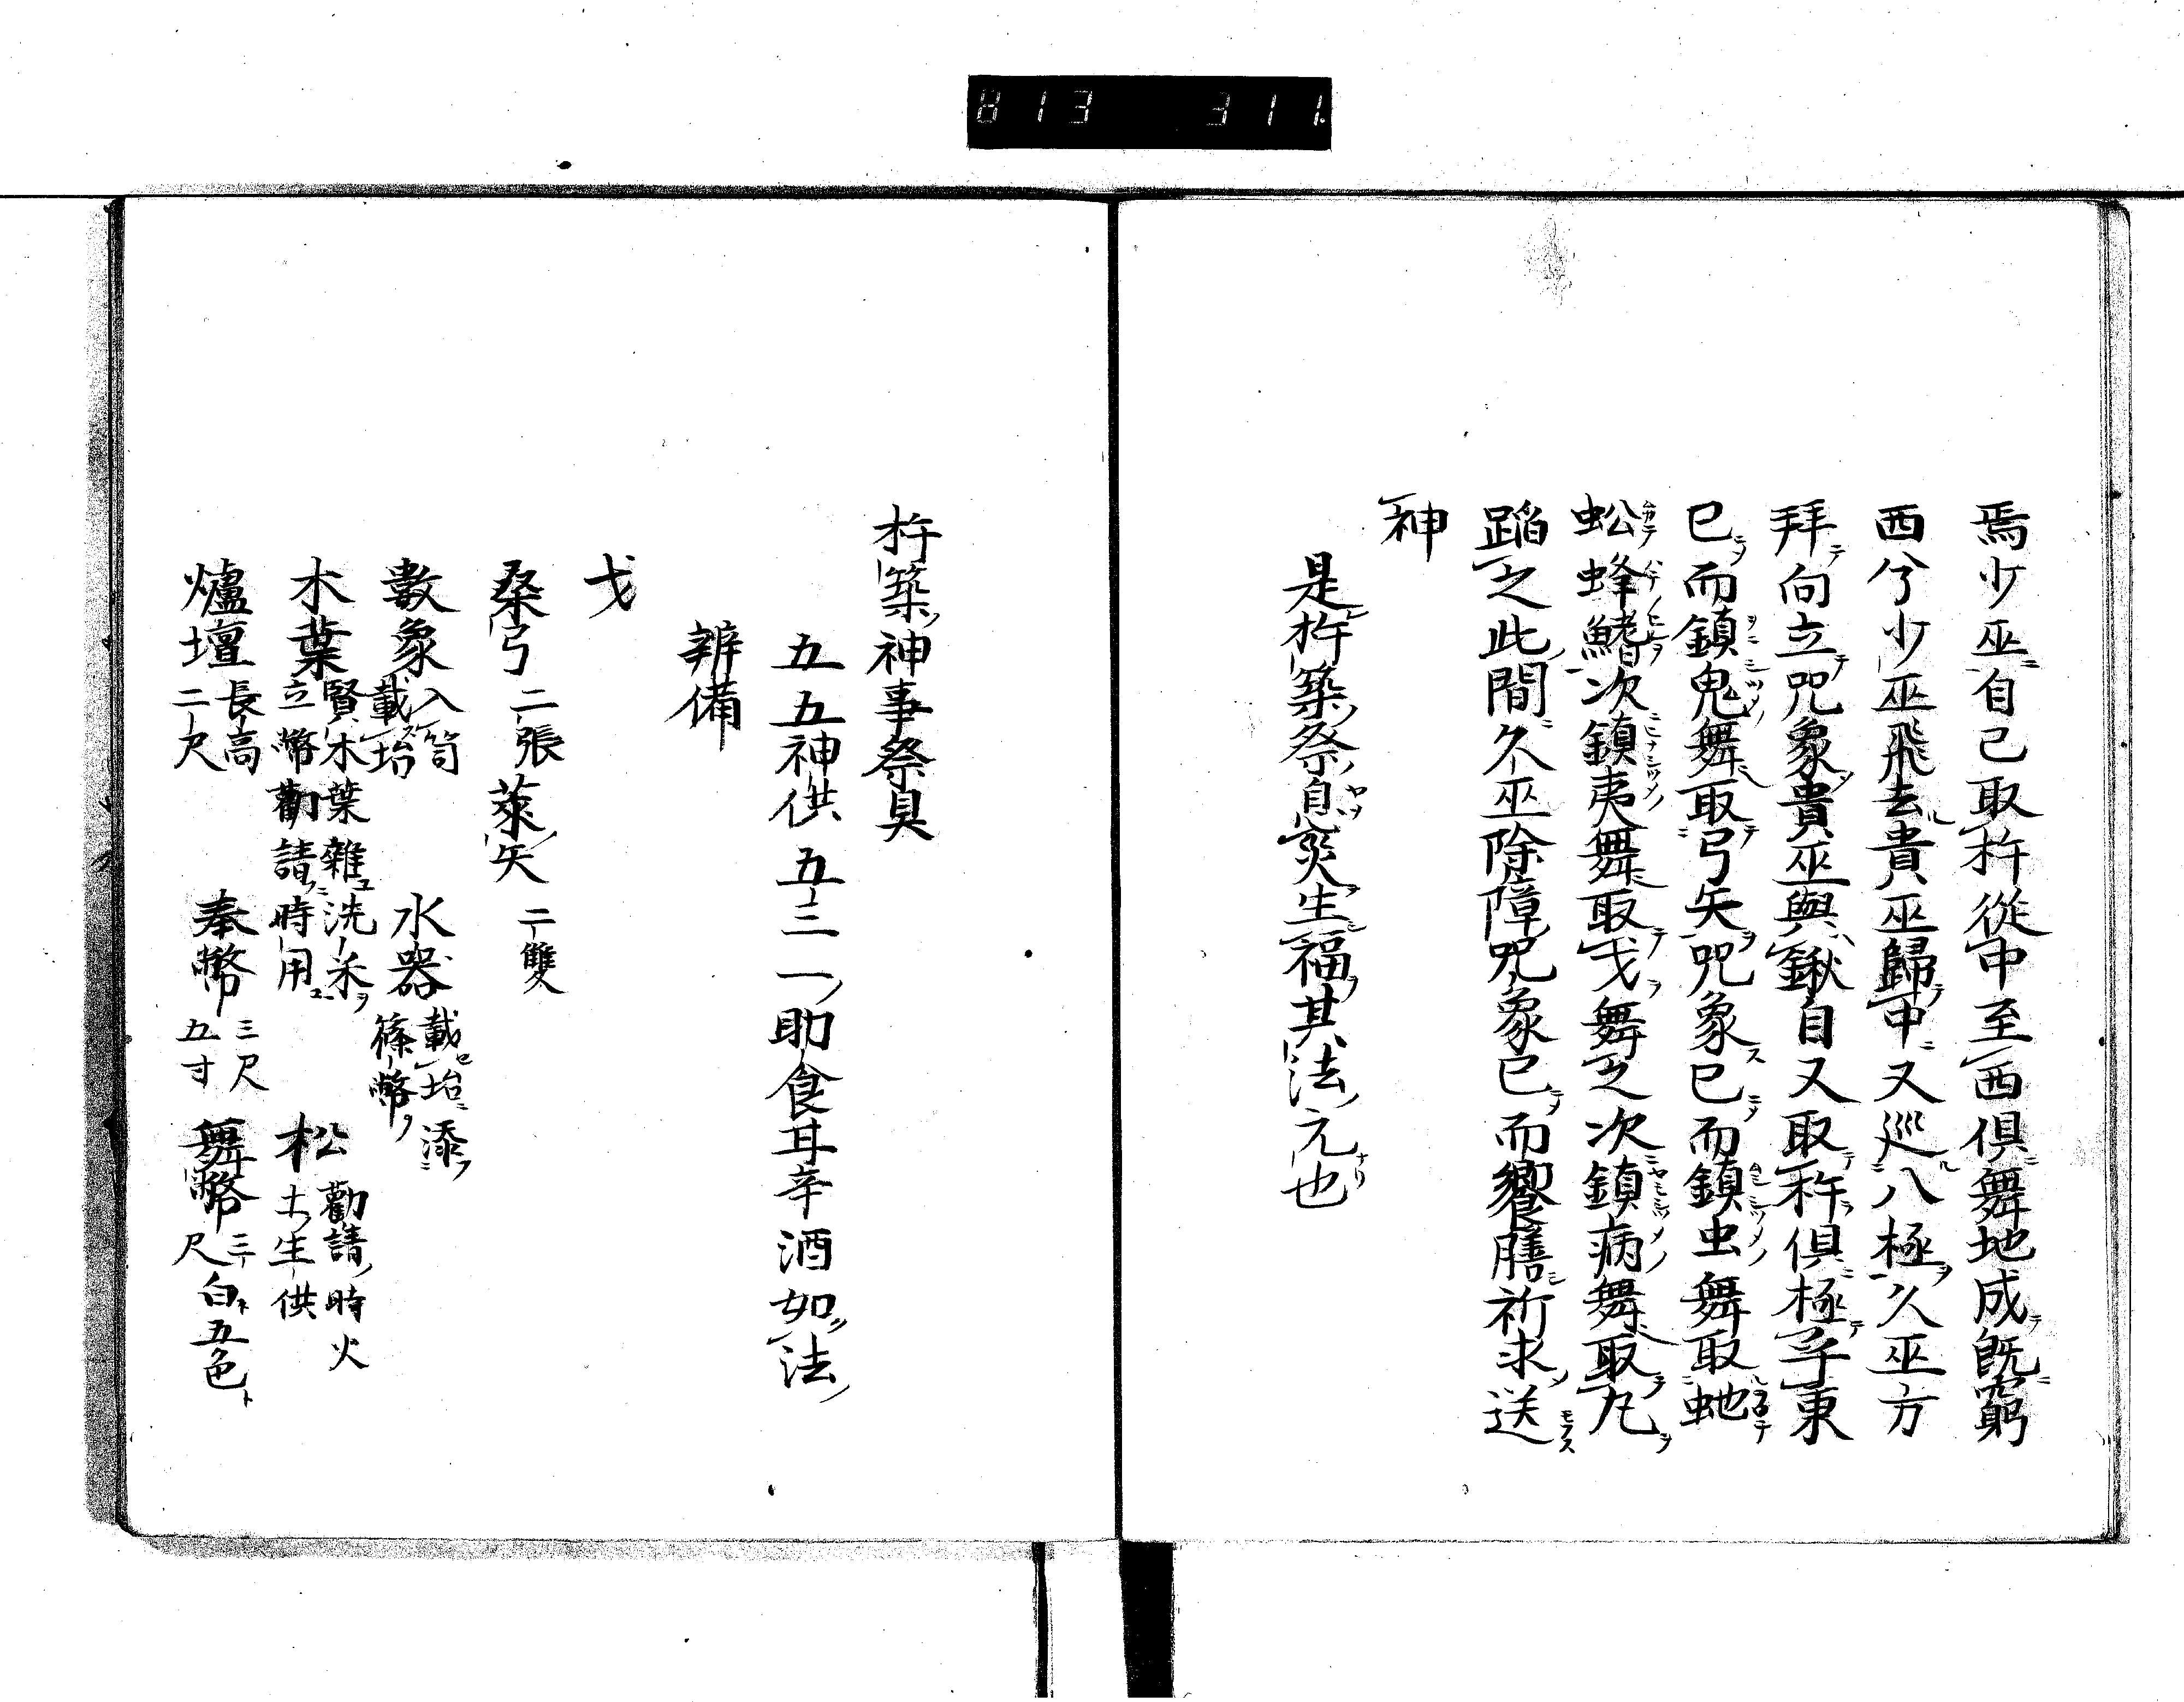 813 311.
焉少巫自己取杵從中至西俱舞地成既窮
西兮少巫飛去貴巫歸中又巡八極久巫方
拜向立咒象貴巫與鍬自又取杵俱極于東
已而鎮鬼舞取弓矢咒象已而鎮虫舞取虵
蚣蜂鰭次鎮夷舞取戈舞之次鎮病舞取丸
蹈之此間久巫除障咒象已而饗膳祈求送
神
是杵築祭息災生福其法元也
杵築神事祭具
五五神供五三一助食甘辛酒如法
辨備
戈
桑弓 二張 蓬矢 二雙
數象 入筒 載坮 水器 載坮添 篠幣
木葉 賢木葉雜洗禾 立幣勸請時用 松 勸請時火 土生供
爐壇 長高 二尺 奉幣 三尺 五寸 舞幣 三尺 白五色